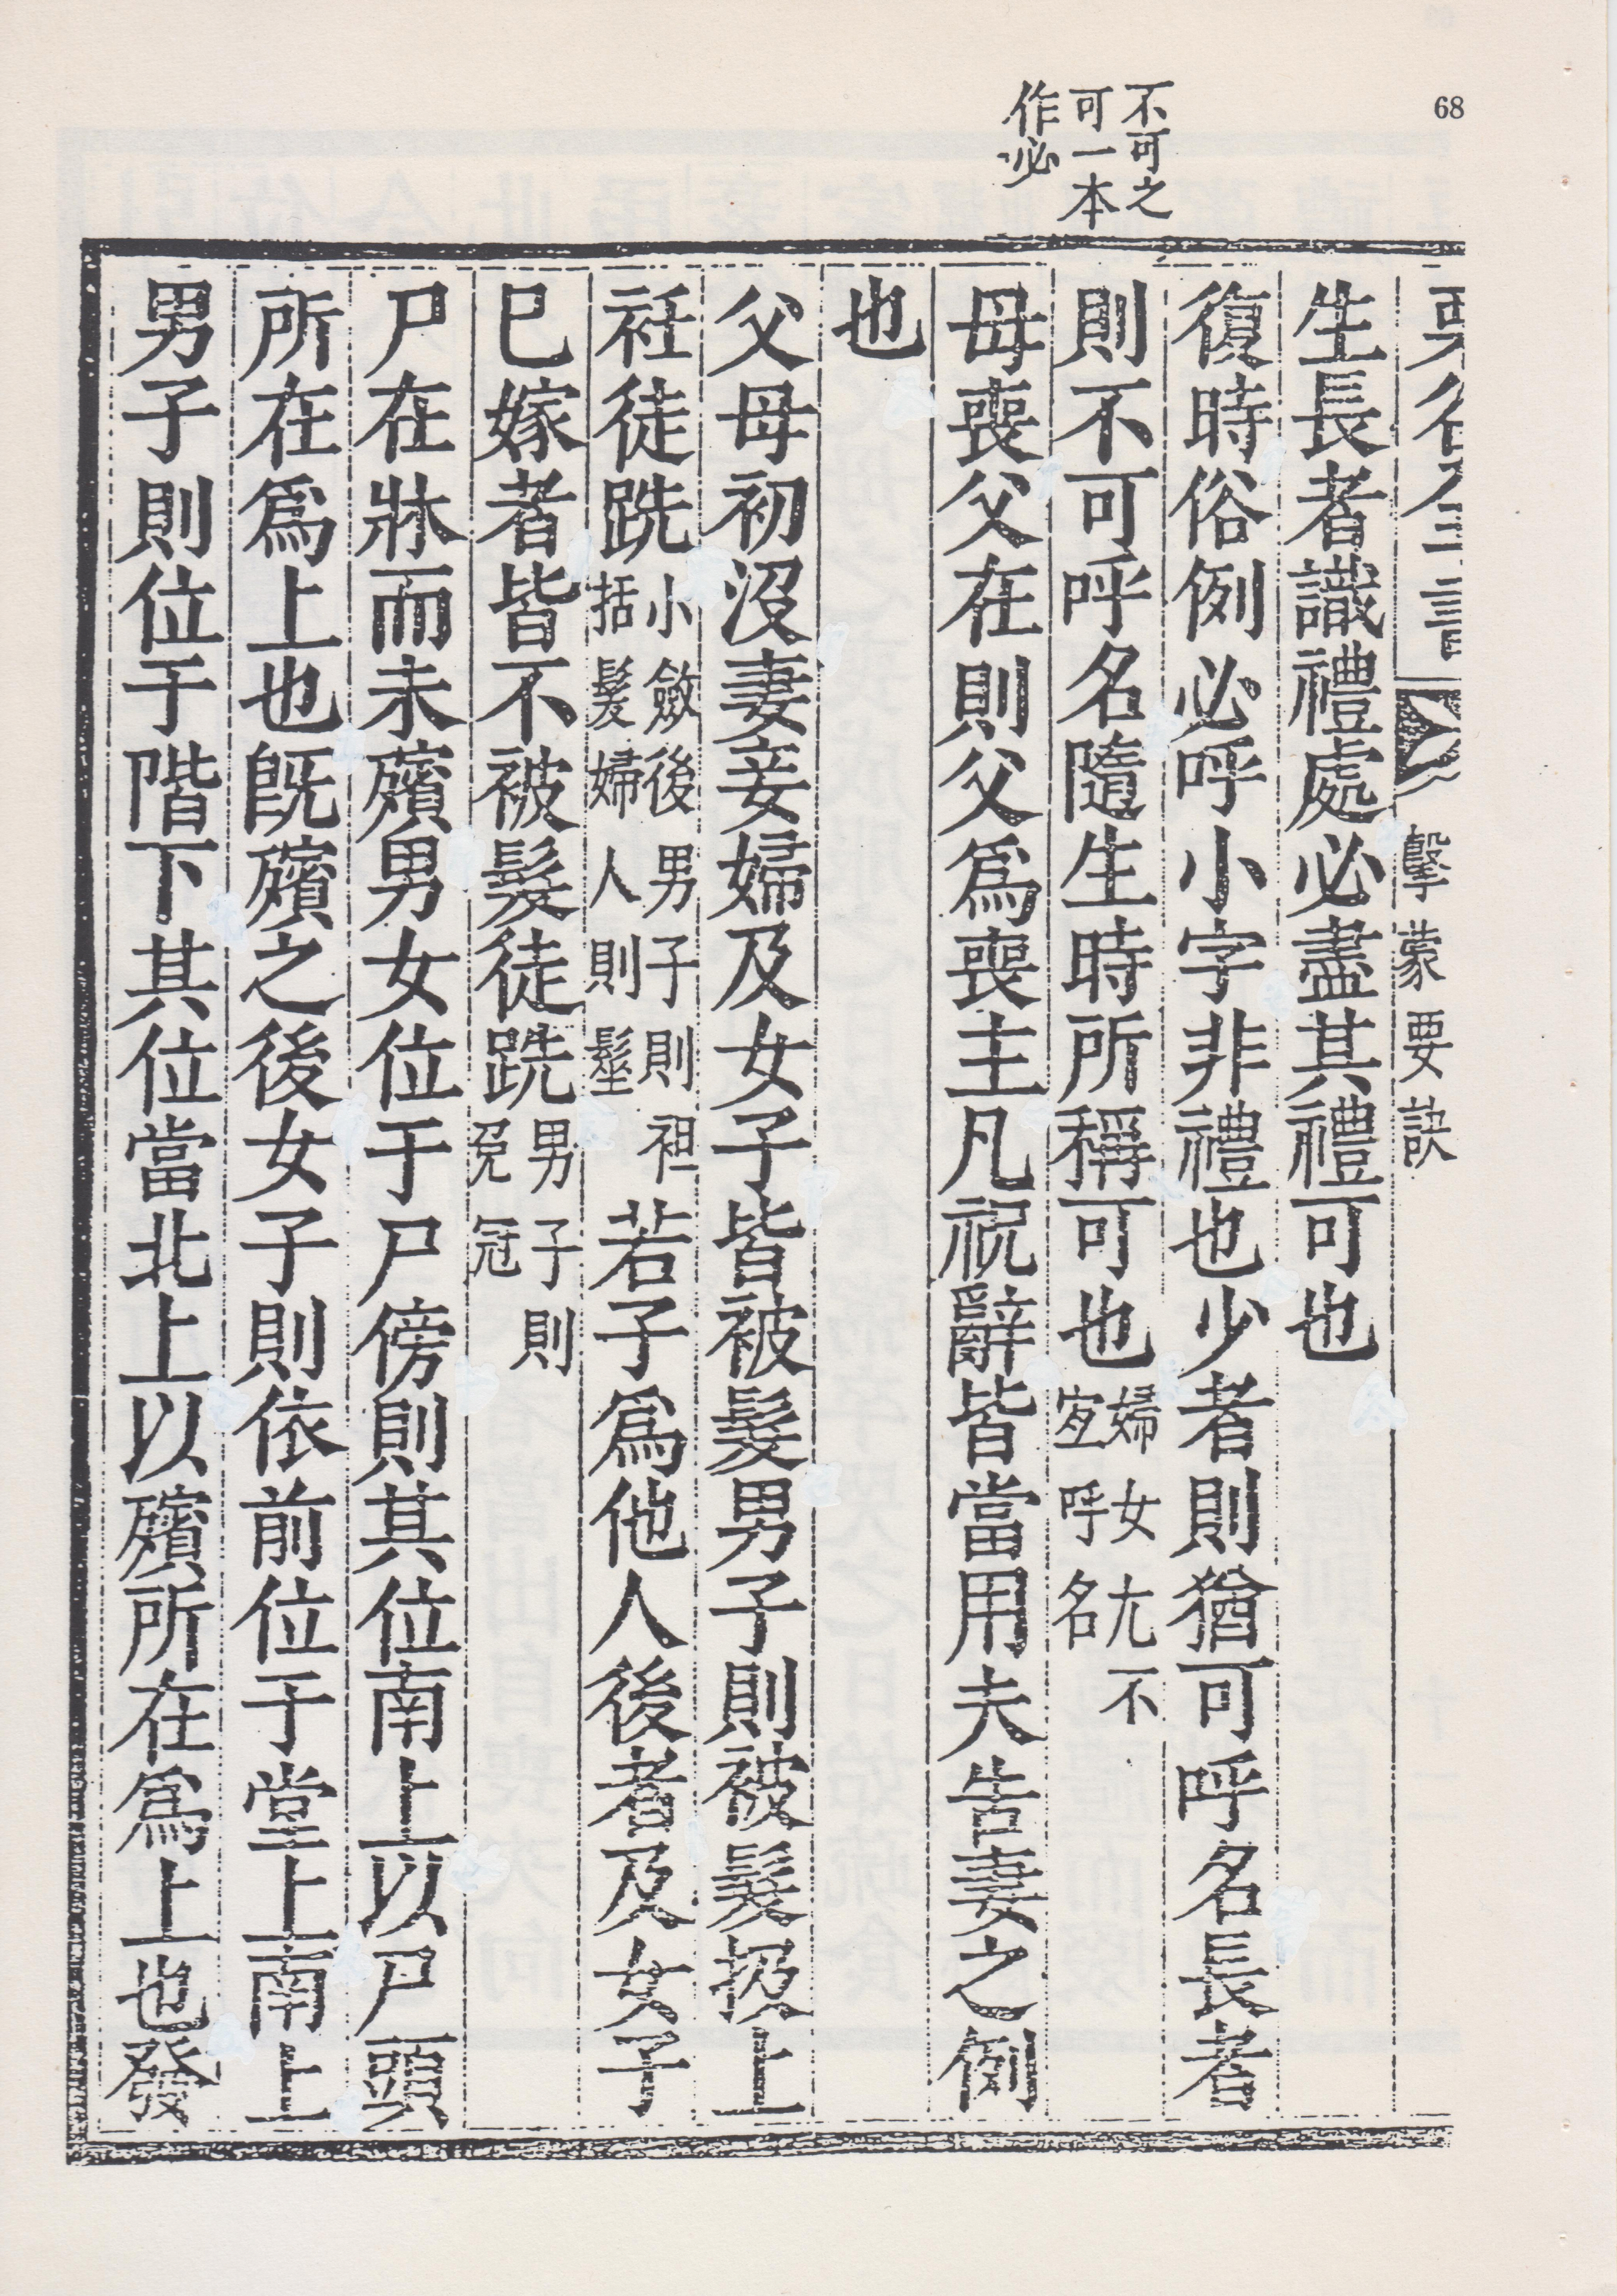 68
不可之
可一本
作必
擊蒙要訣
生長者識禮處必盡其禮可也
復時俗例必呼小字非禮也少者則猶可呼名長者
則不可呼名隨生時所稱可也婦女尤不
宜呼名
母喪父在則父爲喪主凡祝辭皆當用夫告妻之例
也
父母初沒妻妾婦及女子皆被髮男子則被髮扱上
衽徒跣小斂後男子則袒
括髮婦人則髽
若子爲他人後者及女子
已嫁者皆不被髮徒跣男子則
免冠
尸在牀而未殯男女位于尸傍則其位南上以尸頭
所在爲上也旣殯之後女子則依前位于堂上南上
男子則位于階下其位當北上以殯所在爲上也發